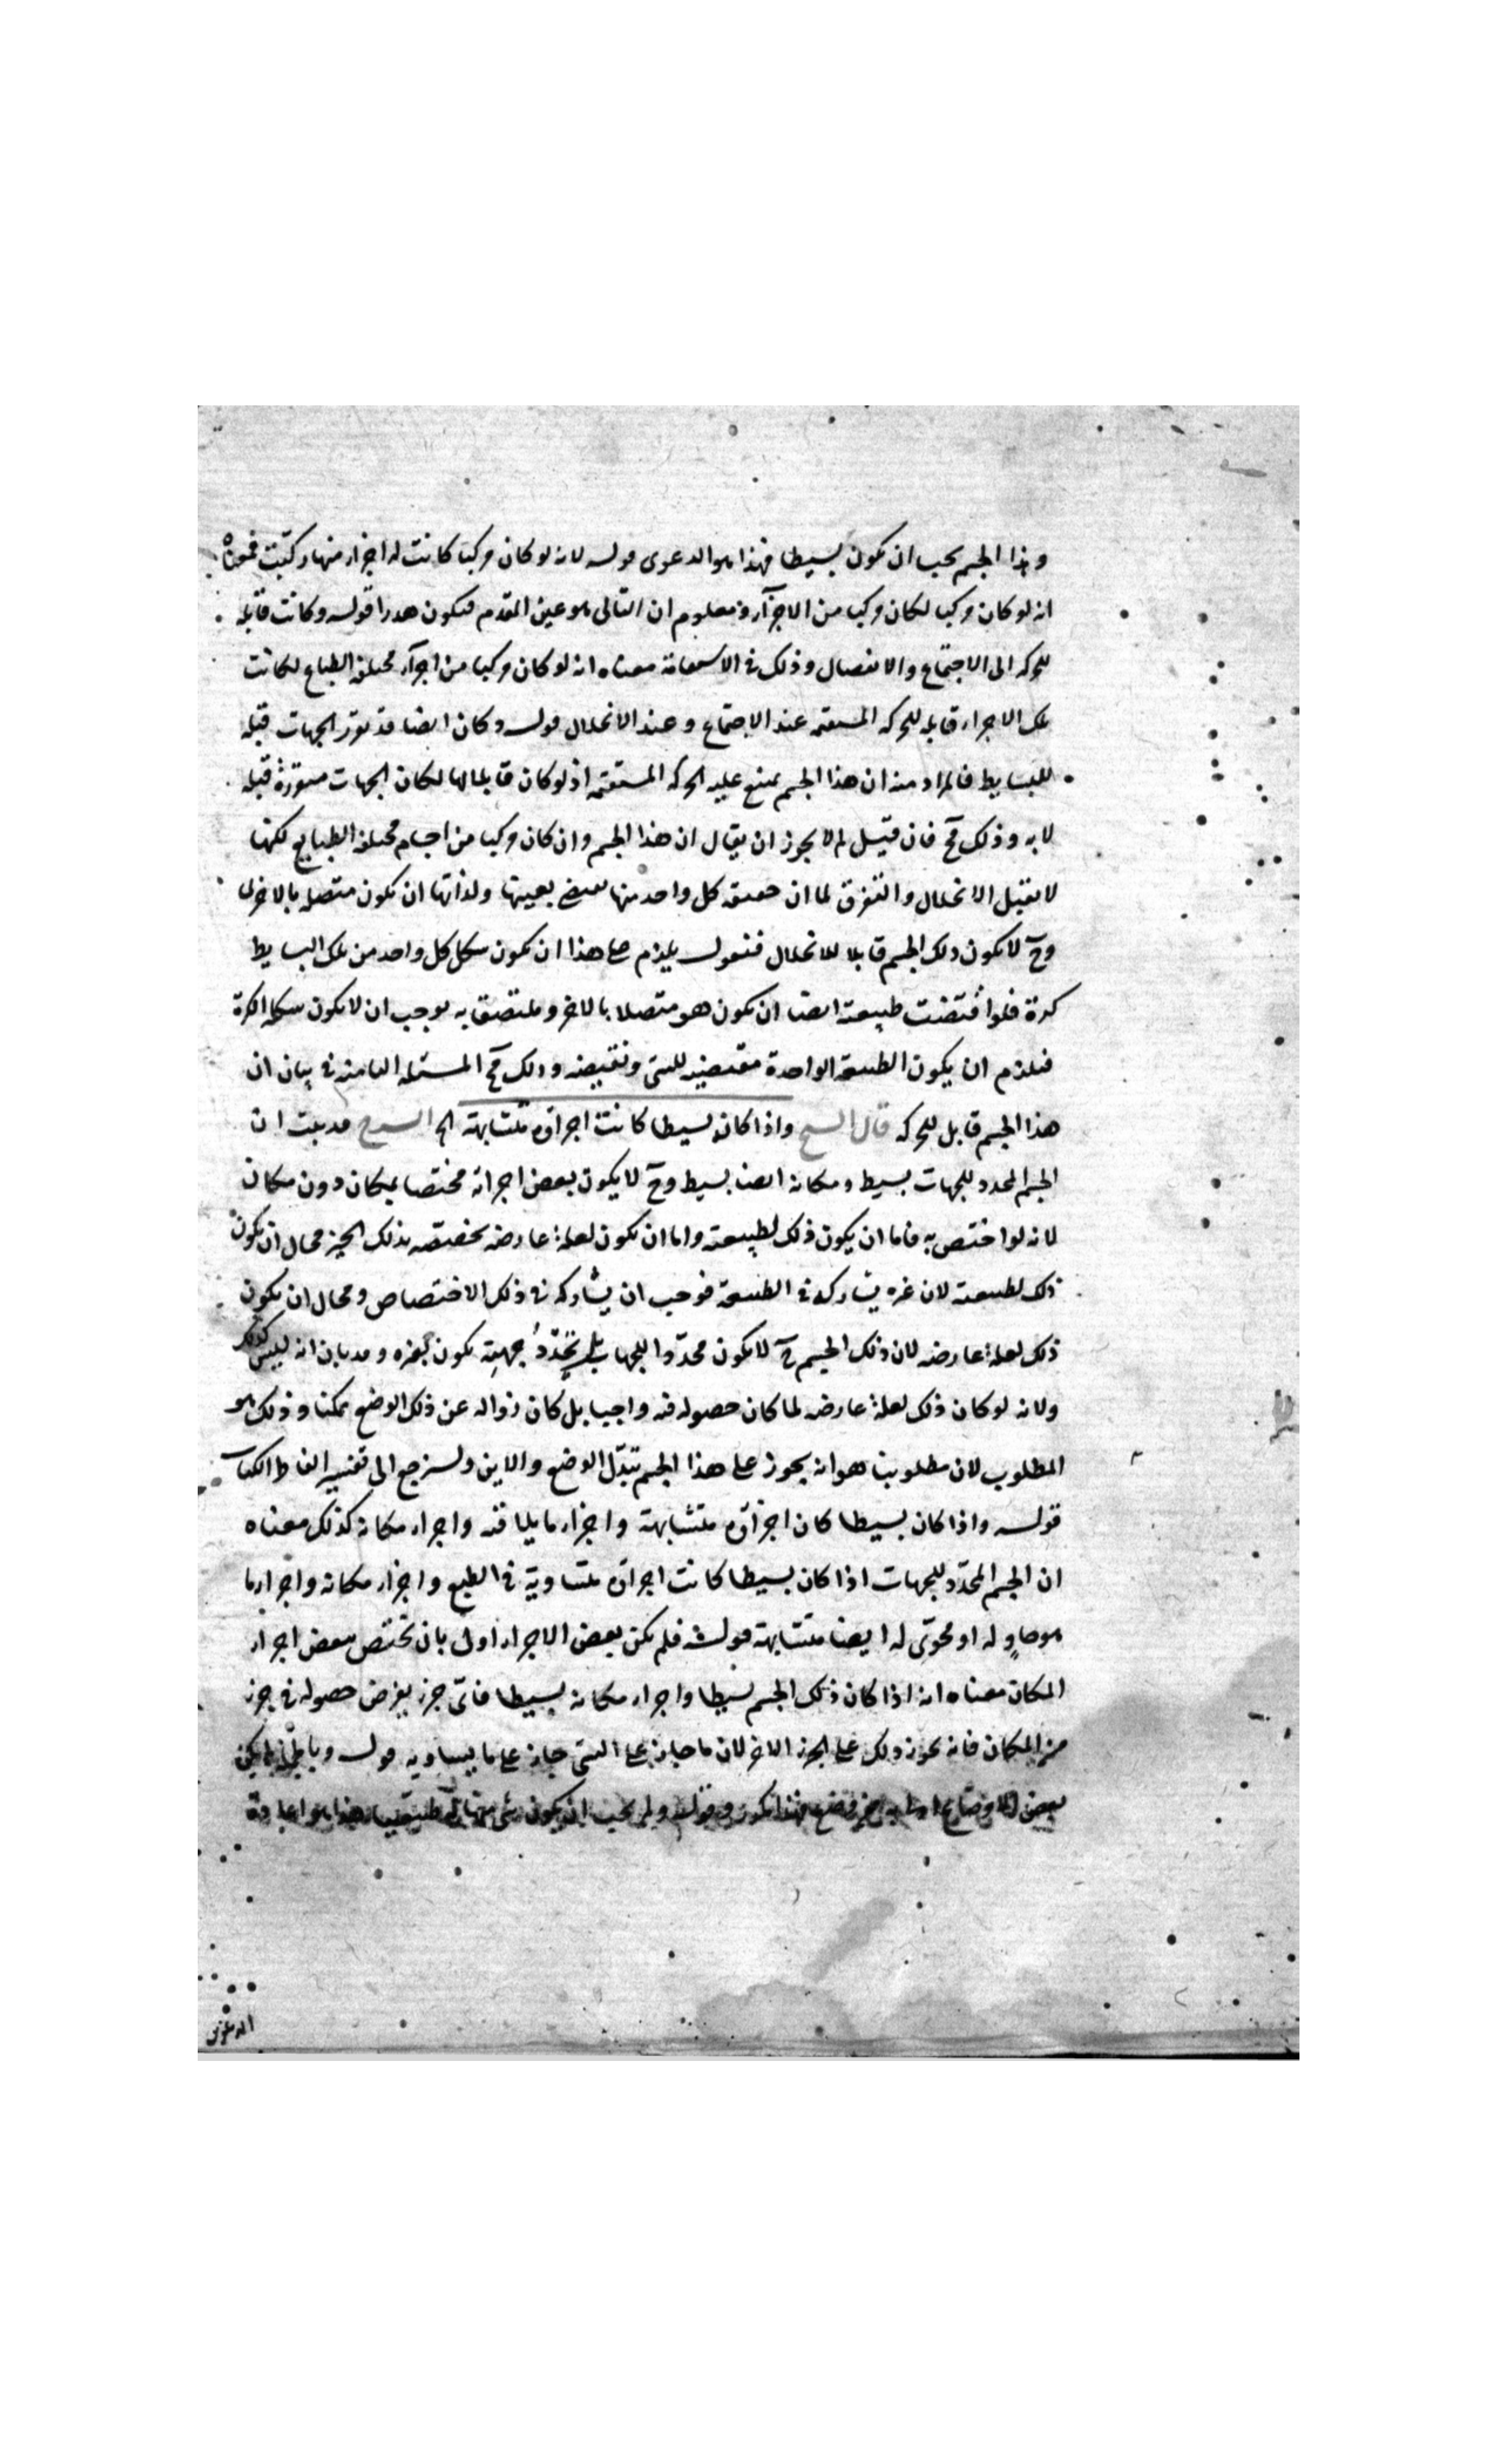 وهذا الجسم يجب ان يكون بسيطا فهذا هو الدعوى قوله لانه لو كان مركبا كانت له اجزاء منها ركبت فمعناه
انه لو كان مركبا لكان مركبا من الاجزآء ومعلوم ان التالى هو عين المقدم فيكون هدرا قوله وكانت قابلة
للحركه الى الاجتماع والانفصال وذلك فى الاستقامة معناه انه لو كان مركبا من اجزآء مختلفه الطباع لكانت
تلك الاجزاء قابله للحركه المستقيمه عند الاجتماع وعند الانحلال قوله وكان ايضا قد تقرر الجهات قبله
للبسايط فالمراد منه ان هذا الجسم يمتنع عليه الحركه المستقيمه اذ لو كان قابلا لها لكان الجهات متقررة قبله
لا به وذلك مح فان قيل لم لا يجوز ان يقال ان هذا الجسم وان كان مركبا من اجسام مختلفه الطبايع لكنها
لا تقبل الانحلال والتفرق لما ان حقيقه كل واحد منها تقتضى بعينها ولذاتها ان تكون متصله بالاخرى
وح لا يكون ذلك الجسم قابلا للانحلال فنقول يلزم على هذا ان يكون شكل كل واحد من تلك البسايط
كرة فلو اقتضت طبيعته ايضا ان يكون هو متصلا بالاخر وملتصق به لوجب ان لا يكون شكله الكرة
فيلزم ان يكون الطبيعة الواحدة مقتضيه للشئ ونقيضه وذلك مح المسئله الثامنه فى بيان ان
هذا الجسم قابل للحركه قال الشيخ واذا كان بسيطا كانت اجزاؤه متشابهة الخ الشرح قد ثبت ان
الجسم المحدد للجهات بسيط ومكانه ايضا بسيط وح لا يكون بعض اجزائه مختصا بمكان دون مكان
لانه لو اختص به فاما ان يكون ذلك لطبيعته واما ان يكون لعلة عارضه تخصصه بذلك الحيز محال ان يكون
ذلك لطبيعته لان غيره يشاركه فى الطبيعة فوجب ان يشاركه فى ذلك الاختصاص ومحال ان يكون
ذلك لعلة عارضه لان ذلك الجسم ح لا يكون محددا للجهات بل تحدد جهته يكون بغيره وقد بان انه ليس كذلك
ولانه لو كان ذلك لعلة عارضه لما كان حصوله فيه واجبا بل كان زواله عن ذلك الوضع ممكنا وذلك هو
المطلوب لان مطلوبنا هو انه يجوز على هذا الجسم تبدل الوضع والاين ولنرجع الى تفسير الفاظ الكتاب
قوله واذا كان بسيطا كان اجزاؤه متشابهة واجزاء ما يلاقيه واجزاء مكانه كذلك معناه
ان الجسم المحدد للجهات اذا كان بسيطا كانت اجزاؤه متساوية فى الطبع واجزاء مكانه واجزاء ما
هو حاو له او محوى له ايضا متشابهة قوله فلم يكن بعض الاجزاء اولى بان تختص ببعض اجزاء
المكان معناه انه اذا كان ذلك الجسم بسيطا واجزاء مكانه بسيطا فاى جزء يفرض حصوله فى جزء
من المكان فانه يجوز ذلك على الجزء الاخر لان ما جاز على الشئ جاز على ما يساويه قوله
بعض الاوضاع اولى به من وضع فهذا وقوله ولم يجب ان يكون شئ منها هذا هو اعادة